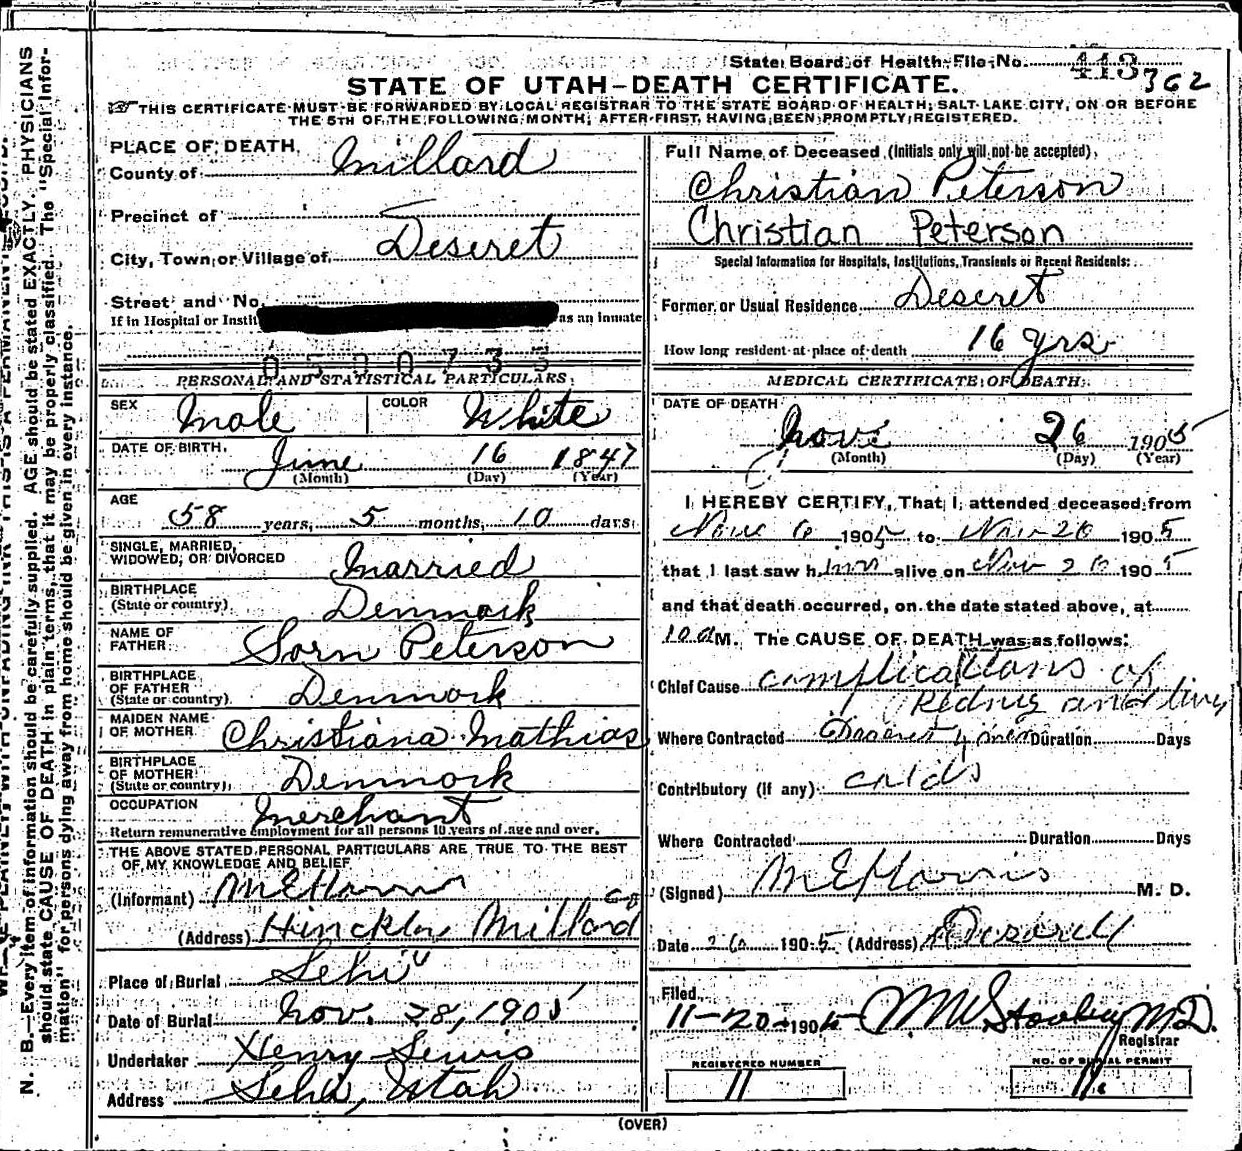 State Board of Health File No. 443 362
STATE OF UTAH—DEATH CERTIFICATE.
THIS CERTIFICATE MUST BE FORWARDED BY LOCAL REGISTRAR TO THE STATE BOARD OF HEALTH, SALT LAKE CITY, ON OR BEFORE
THE 5TH OF THE FOLLOWING MONTH, AFTER FIRST HAVING BEEN PROMPTLY REGISTERED.
PLACE OF DEATH,
County of Millard
Precinct of
City, Town or Village of Deseret
Street and No.
If in Hospital or Instit as an inmate
PERSONAL AND STATISTICAL PARTICULARS.
SEX Male COLOR White
DATE OF BIRTH, June 16 1847
(Month) (Day) (Year)
AGE
58 years, 5 months, 10 days
SINGLE, MARRIED,
WIDOWED, OR DIVORCED Married
BIRTHPLACE
(State or country) Denmark
NAME OF
FATHER Sorn Peterson
BIRTHPLACE
OF FATHER
(State or country) Denmark
MAIDEN NAME
OF MOTHER Christiana Mathias
BIRTHPLACE
OF MOTHER
(State or country) Denmark
OCCUPATION Merchant
Return remunerative employment for all persons 10 years of age and over.
THE ABOVE STATED PERSONAL PARTICULARS ARE TRUE TO THE BEST
OF MY KNOWLEDGE AND BELIEF
(Informant) M E Harris
(Address) Hinckley Millard Co
Place of Burial Lehi
Date of Burial Nov. 28, 1905
Undertaker Henry Lewis
Address Lehi, Utah
Full Name of Deceased (Initials only will not be accepted)
Christian Peterson
Christian Peterson
Special Information for Hospitals, Institutions, Transients or Recent Residents:
Former or Usual Residence Deseret
How long resident at place of death 16 yrs
MEDICAL CERTIFICATE OF DEATH.
DATE OF DEATH
Nov. 26 1905
(Month) (Day) (Year)
I HEREBY CERTIFY, That I attended deceased from
Nov 6 1905 to Nov 26 1905
that I last saw him alive on Nov 26 1905
and that death occurred, on the date stated above, at
10 a M. The CAUSE OF DEATH was as follows:
Chief Cause complications of
Kidney and liver
Where Contracted Deseret Duration Days
Contributory (if any) colds
Where Contracted Duration Days
(Signed) M E Harris M. D.
Date 26 1905 (Address) Deseret
Filed
11-20-1905 M.D.
Registrar
REGISTERED NUMBER NO. OF BURIAL PERMIT
11 11
(OVER)
N. B.—Every item of information should be carefully supplied. AGE should be stated EXACTLY. PHYSICIANS
should state CAUSE OF DEATH in plain terms, that it may be properly classified. The "Special Infor-
mation" for persons dying away from home should be given in every instance.